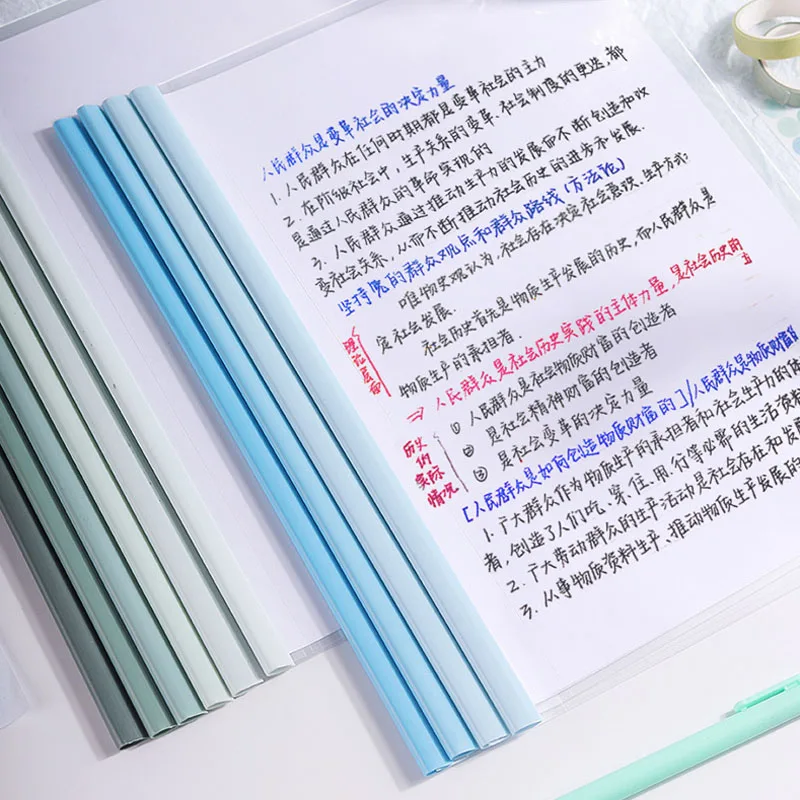 人民群众是变革社会的决定力量
1. 人民群众在任何时期都是变革社会的主力
2. 在阶级社会中，生产关系的变革、社会制度的更迭，都
是通过人民群众的革命实现的
3. 人民群众通过推动生产力的发展而不断创造和改
变社会关系，从而不断推动社会历史的进步和发展.
坚持党的群众观点和群众路线 (方法论)
唯物史观认为，社会存在决定社会意识，生产方式
定社会发展.
社会历史首先是物质生产发展的历史，而人民群众是
物质生产的承担者.
理论层面
⇒ 人民群众是社会历史实践的主体力量，是社会历史的
① 人民群众是社会物质财富的创造者
② 是社会精神财富的创造者
③ 是社会变革的决定力量
历史的实际情况
[人民群众是如何创造物质财富的]/人民群众是物质财富的
1. 广大群众作为物质生产的承担者和社会生产力的体
者，创造了人们吃、穿、住、用、行等必需的生活资料
2. 广大劳动群众的生产活动是社会存在和发展
3. 从事物质资料生产、推动物质生产发展的